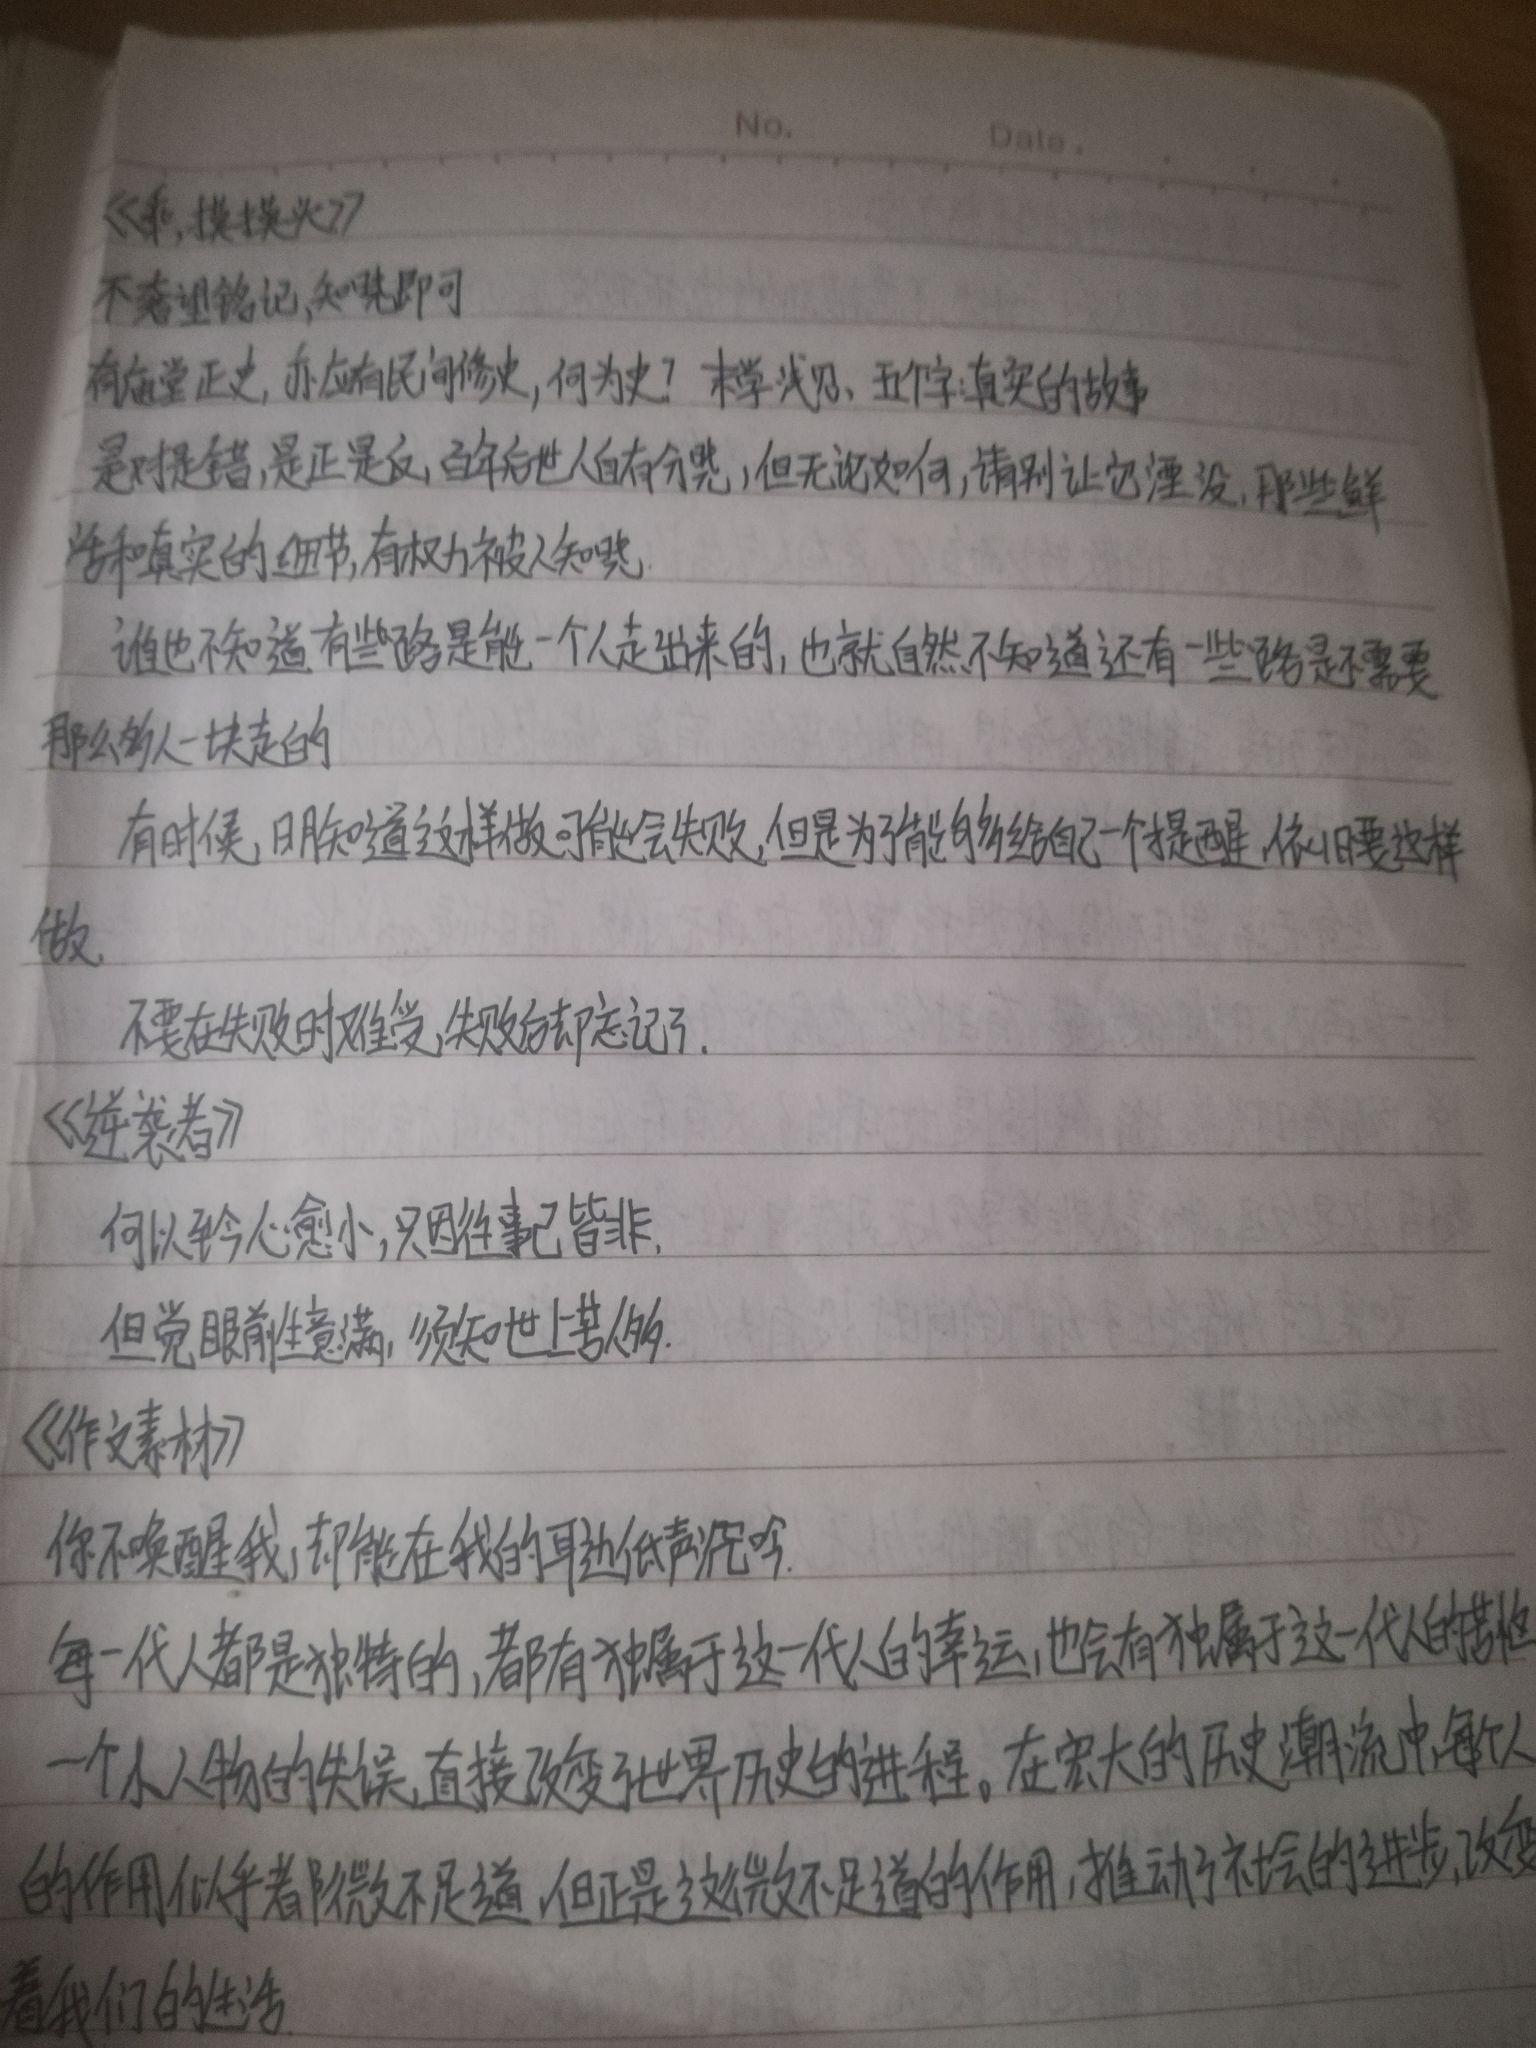 No. Date.
《乖,摸摸头》
不奢望铭记,知晓即可
有庙堂正史,亦应有民间修史,何为史?末学浅见、五个字:真实的故事
是对是错,是正是反,百年后世人自有分晓,但无论如何,请别让它湮没,那些鲜
活和真实的细节,有权力被人知晓.
谁也不知道有些路是能一个人走出来的,也就自然不知道还有一些路是不需要
那么多人一块走的
有时候,明知道这样做可能会失败,但是为了能够给自己一个提醒,依旧要这样
做.
不要在失败时难受,失败后却忘记了.
《逆袭者》
何以至今心愈小,只因往事已皆非.
但觉眼前生意满,须知世上苦人多.
《作文素材》
你不唤醒我,却能在我的耳边低声沉吟.
每一代人都是独特的,都有独属于这一代人的幸运,也会有独属于这一代人的苦恼
一个小人物的失误,直接改变了世界历史的进程。在宏大的历史潮流中,每个人
的作用似乎都微不足道,但正是这微不足道的作用,推动了社会的进步,改变
着我们的生活.